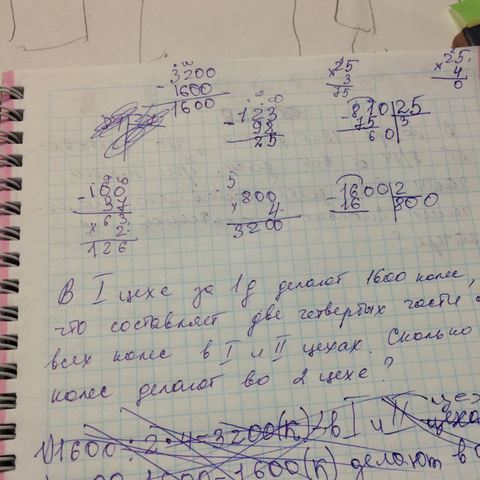 3200
- 1600
1600
- 123
98
25
× 25
3
75
× 25
4
0
- 810 | 25
75 | 3
60
- 100
37
× 63
2
126
5
× 800
4
3200
- 1600 | 2
16 | 800
В I цехе за 1д делают 1600 колес,
что составляет две четвертых части
всех колес в I и II цехах. Сколько
колес делают во 2 цехе?
1) 1600 : 2 · 4 = 3200 (к) - в I и II цеха
1600 (к) делают в